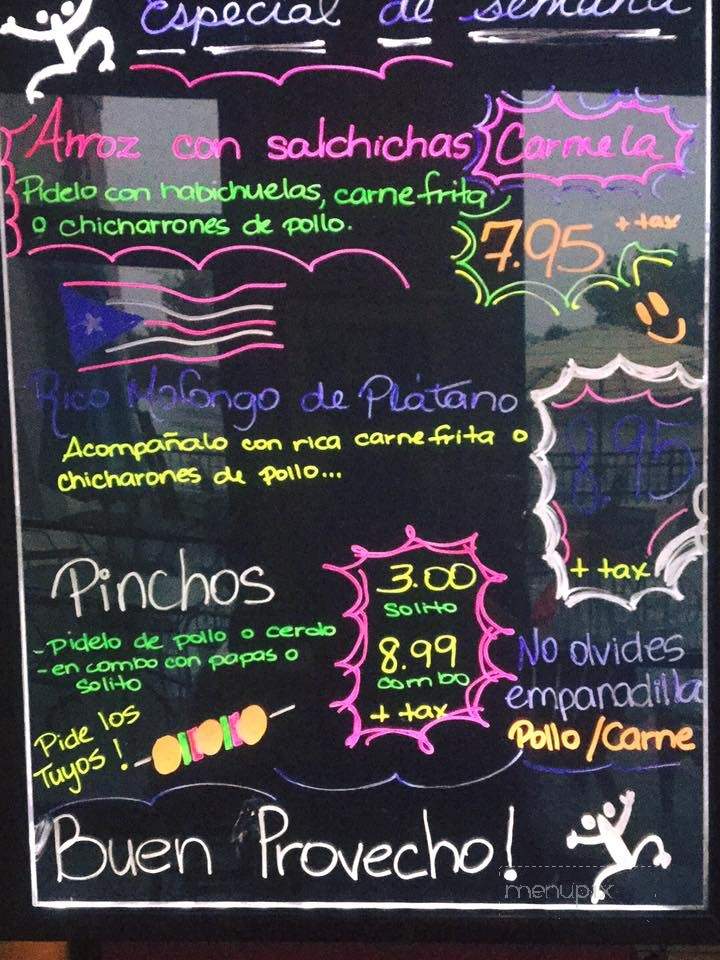 Especial de semana
Arroz con salchichas Carmela
Pidelo con habichuelas, carne frita
o chicharrones de pollo.
7.95 + tax
Rico Mofongo de Plátano
Acompañalo con rica carne frita o
chicharones de pollo...
8.95
+ tax
Pinchos
- Pidelo de pollo o cerdo
- en combo con papas o
solito
3.00
solito
8.99
combo
+ tax
Pide los
Tuyos!
No olvides
empanadilla
Pollo/Carne
Buen Provecho!
menupix